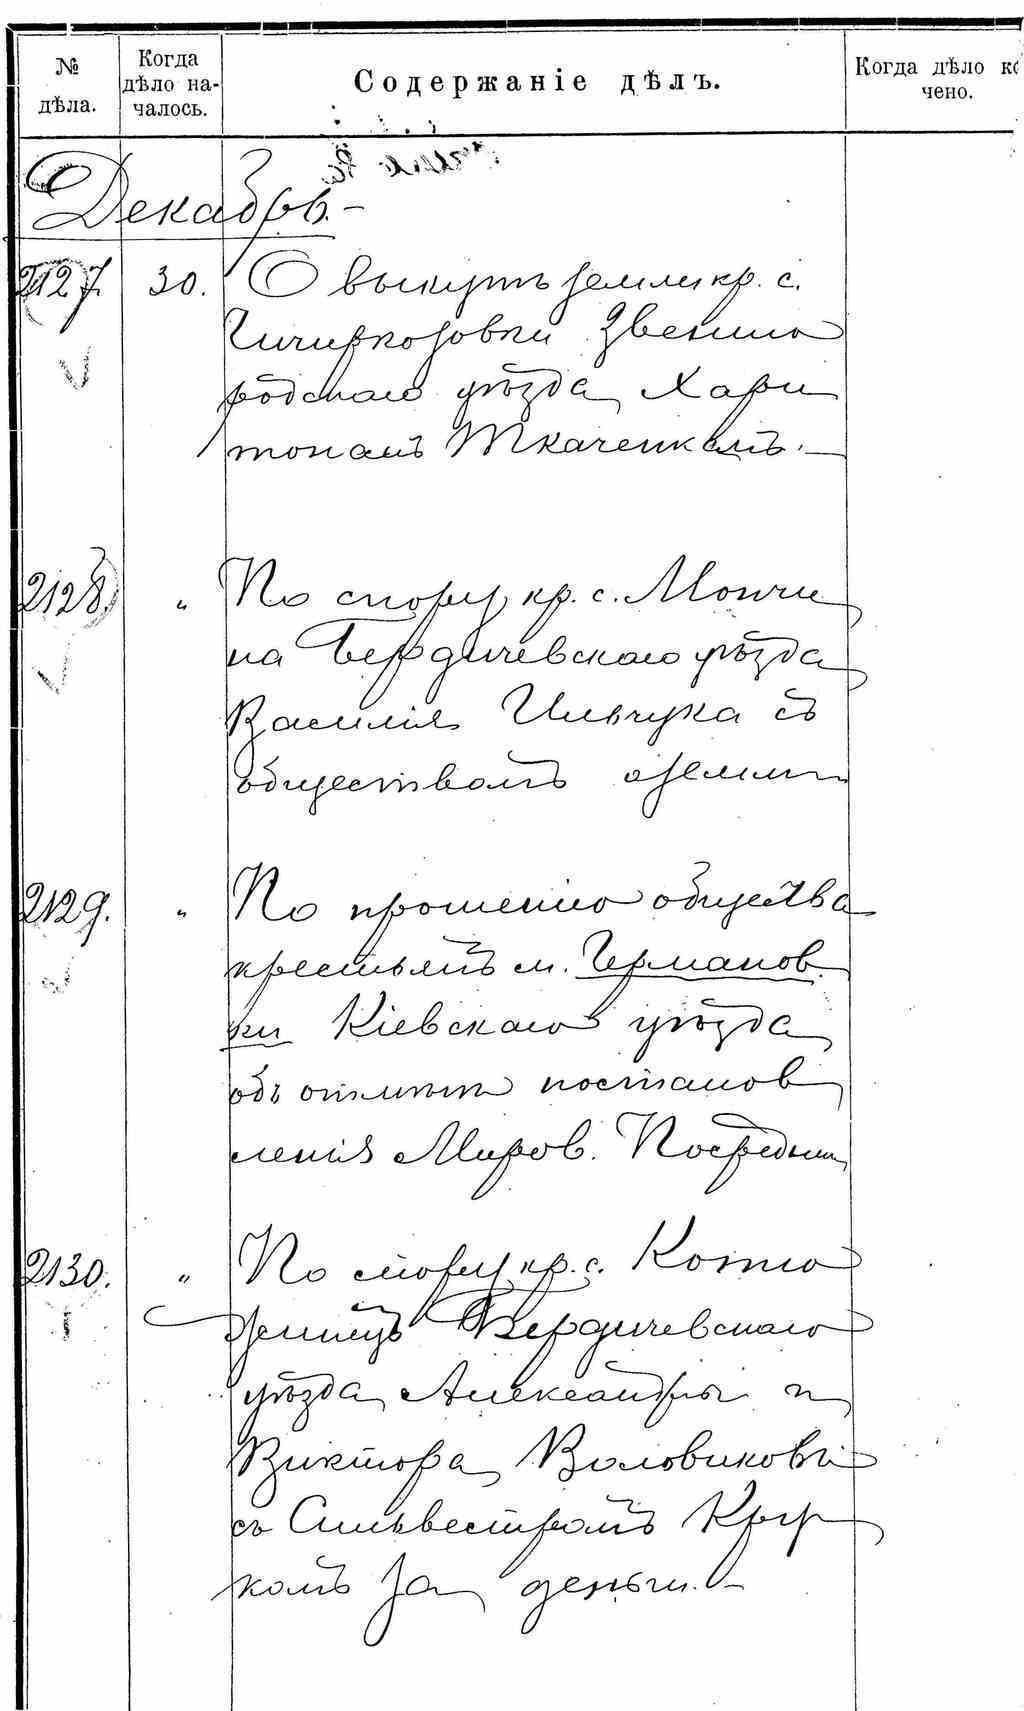 № дѣла.
Когда дѣло на-
чалось.
Содержаніе дѣлъ.
Когда дѣло ко
чено.
Декабрь.-
2127. 30. О выкупѣ земли кр. с.
Чичиркозовки Звениго
родскаго уѣзда Хари
тономъ Ткаченкомъ.-
2128. „ По спору кр. с. Мончи
на Бердичевскаго уѣзда
Василія Ильчука съ
обществомъ о земли
2129. „ По прошенію общества
крестьянъ м. Германов
ки Кіевскаго уѣзда
объ отмѣнѣ постанов
ленія Миров. Посредник
2130. „ По спору кр. с. Котю
жинецъ Бердичевскаго
уѣзда Александры и
Виктора Воловиковы
съ Сильвестромъ Кры
комъ за деньги.-